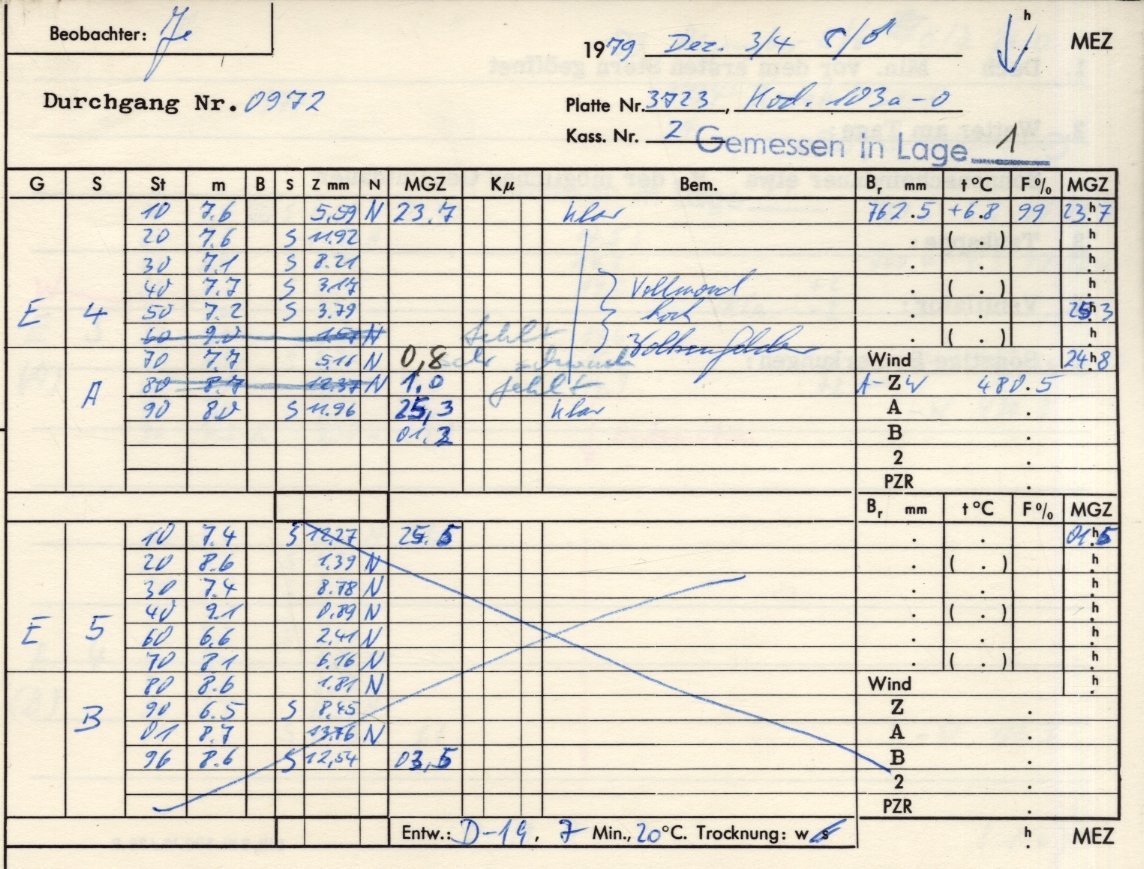 Beobachter: Je
1979 Dez. 3/4
h MEZ
Durchgang Nr. 0972
Platte Nr. 3723, Kod. 103a-0
Kass. Nr. 2 Gemessen in Lage 1
G S St m B S Z mm N MGZ Kμ Bem. Br mm t°C F% MGZ
10 7.6 5,59 N 23.7 klar 762.5 +6.8 99 23.h7
20 7.6 S 11.92 . ( . ) h
30 7.1 S 8.21 . . h
40 7.7 S 3.17 Vollmond . ( . ) h
E 4 50 7.2 S 3.79 hoch . . 25.h3
60 9.0 N fehlt Wolkenfelder . ( . ) h
70 7.7 5.11 N 0,8 sehr schwach Wind 24.h8
A 80 8.7 12.37 N 1.0 fehlt A-Z W 480.5
90 8.0 S 11.96 25,3 klar A .
01.2 B .
2 .
PZR .
Br mm t°C F% MGZ
10 7.4 S 12.27 25.5 . . 01.h5
20 8.6 1.39 N . ( . ) h
30 7.4 8.78 N . . h
40 9.1 0.89 N . ( . ) h
E 5 60 6.6 2.41 N . . h
70 8.1 6.16 N . ( . ) h
80 8.6 1.81 N Wind h
B 90 6.5 S 8,45 Z .
01 8.7 13.76 N A .
96 8.6 S 12,54 03,5 B .
2 .
PZR .
Entw.: D-19, 7 Min., 20°C. Trocknung: w s h MEZ